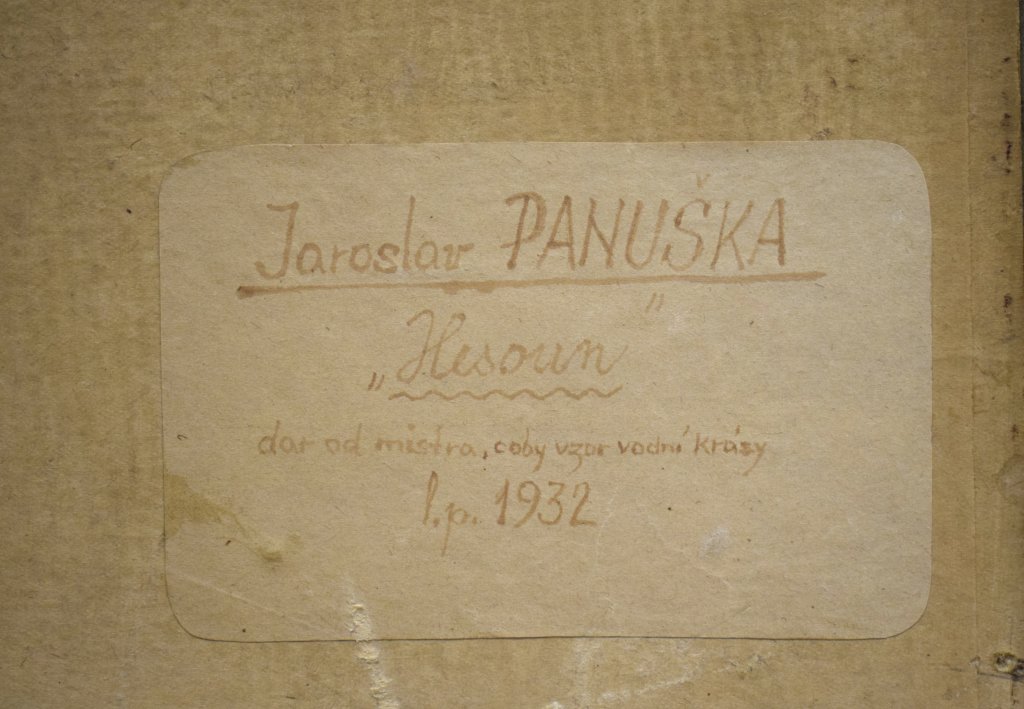 Jaroslav PANUŠKA
„Hesoun"
dar od mistra, coby vzor vodní krásy
l.p. 1932